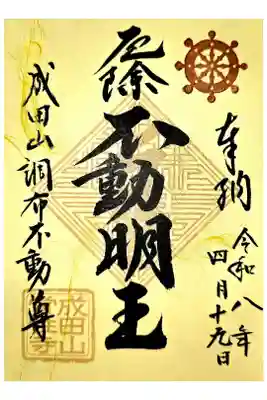 奉納
令和八年
四月十九日
厄除
不動明王
成田山調布不動尊
成田山
常性寺